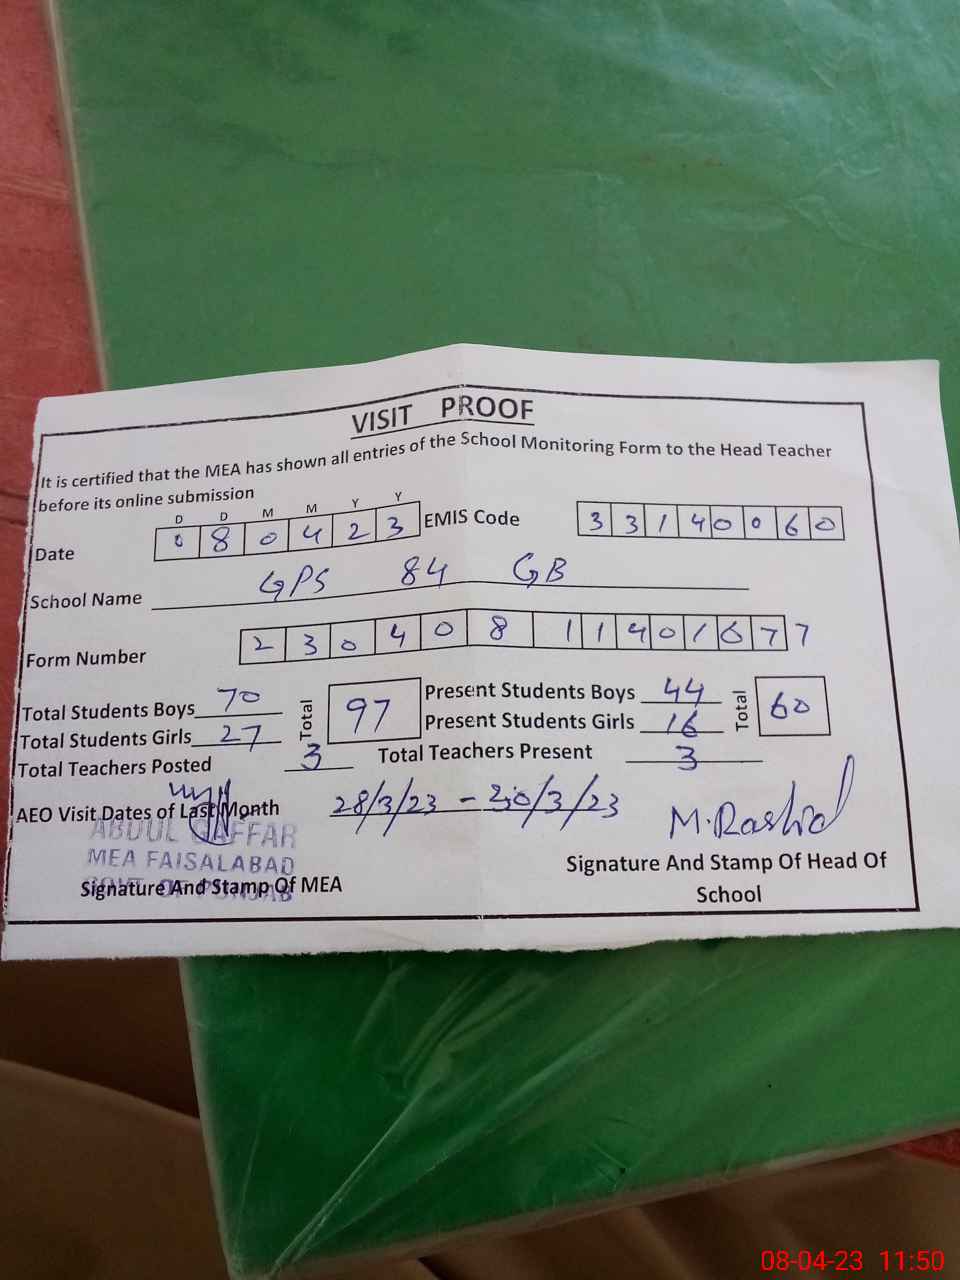 VISIT PROOF
It is certified that the MEA has shown all entries of the School Monitoring Form to the Head Teacher
before its online submission
D D M M Y Y
Date 080423 EMIS Code 33140060
School Name GPS 84 GB
Form Number 230408 11401677
Total Students Boys 70 Total 97 Present Students Boys 44 Total 60
Total Students Girls 27 Present Students Girls 16
Total Teachers Posted 3 Total Teachers Present 3
AEO Visit Dates of Last Month 28/3/23 - 30/3/23 M.Rashid
ABDUL GAFFAR
MEA FAISALABAD
GOVT OF PUNJAB
Signature And Stamp Of MEA
Signature And Stamp Of Head Of
School
08-04-23 11:50